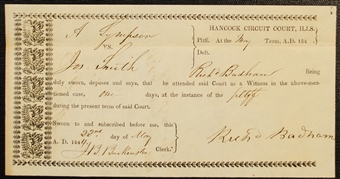 A Sympson
VS.
Jos Smith
HANCOCK CIRCUIT COURT, ILLS.
Plff. At the May Term, A.D. 184
Deft.
Rich'd Badham Being
duly sworn, deposes and says, that he attended said Court as a Witness in the above-men-
tioned case, one days, at the instance of the pltff
during the present term of said Court.
Sworn to and subscribed before me, this
22nd day of May
A. D. 184
Clerk.
Rich'd Badham